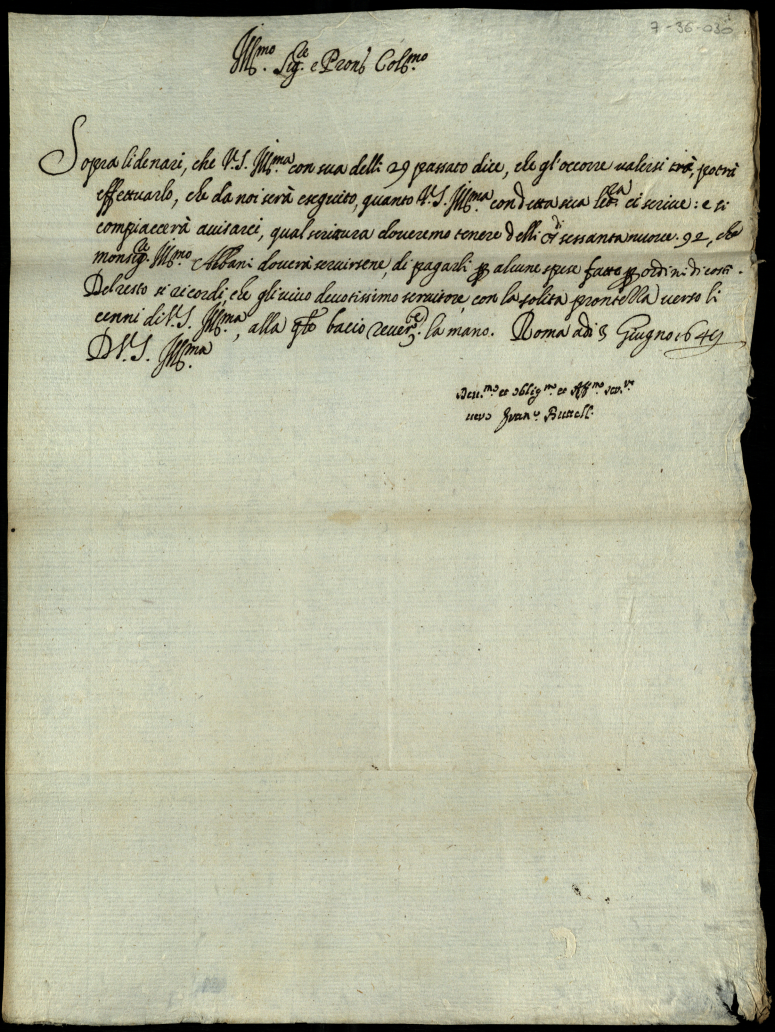 7-36-030
Ill.mo Sig.re e Pron Col.mo
Sopra li denari, che V.S. Ill.ma con sua delli 29 passato dice, che gl'occorre valersi potrà
effettuarlo, che da noi serà eseguito, quanto V.S. Ill.ma con detta sua ci scrive: e si
compiacerà avisarci, qual scrittura doveremo tenere delli sessantanuove. 92, che
monsig.re Ill.mo Albani doverà servirsene, di pagarli alcune spese fatto ordini di costì.
Del resto si ricordi, che gli vivo devotissimo servitore, con la solita prontezza verso li
cenni di V.S. Ill.ma, alla bacio la mano. Roma adi 3 Giugno 1649
D V.S. Ill.ma
Dev.mo et oblig.mo et Aff.mo